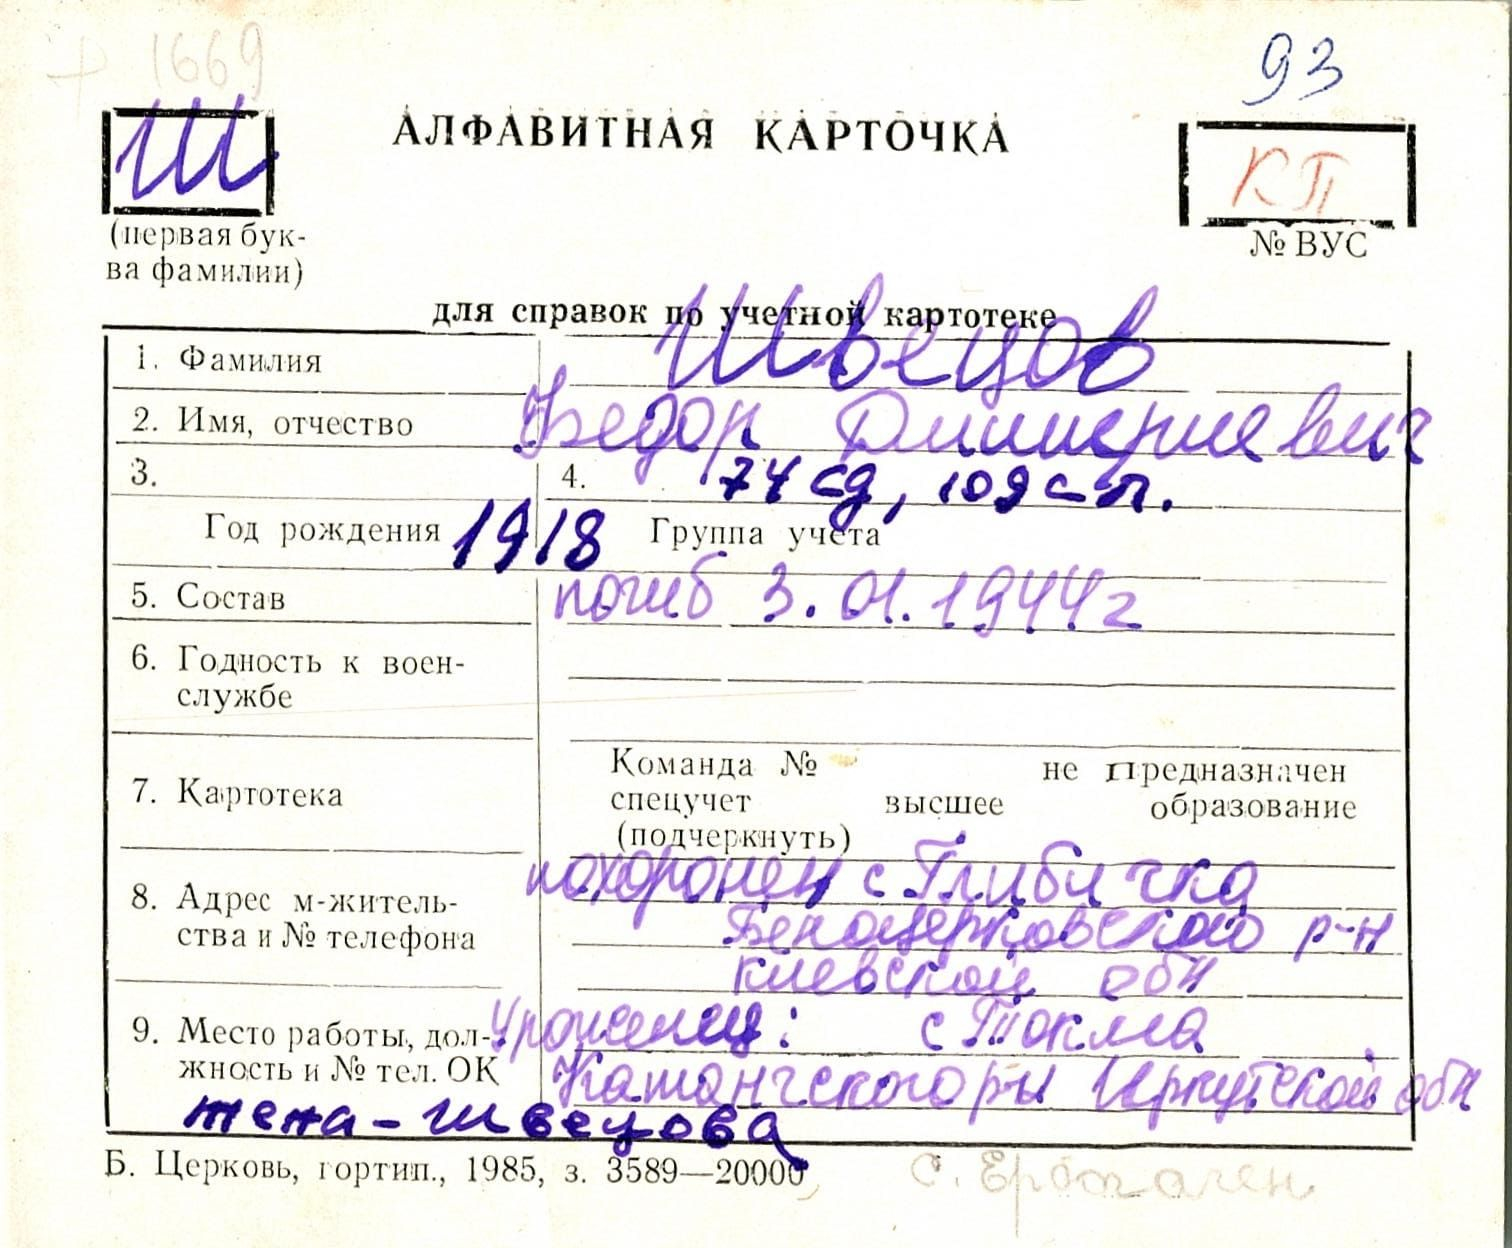 1669
93
Ш
АЛФАВИТНАЯ КАРТОЧКА
КП
(первая бук-
ва фамилии)
№ ВУС
для справок по учетной картотеке
1. Фамилия Швецов
2. Имя, отчество Федор Дмитриевич
3. 4. 74 сд, 109 сп.
Год рождения 1918 Группа учета
5. Состав погиб 3.01.1944г
6. Годность к воен-
службе
Команда № не предназначен
7. Картотека спецучет высшее образование
(подчеркнуть)
похоронен с Глибичка
8. Адрес м-житель-
ства и № телефона Белоцерковского р-н
киевской обл
9. Место работы, дол- Уроженец: с Токма
жность и № тел. ОК Катангского р-н Иркутской обл
жена - Швецова
Б. Церковь, гортип., 1985, з. 3589—20000
с. Ербогачен